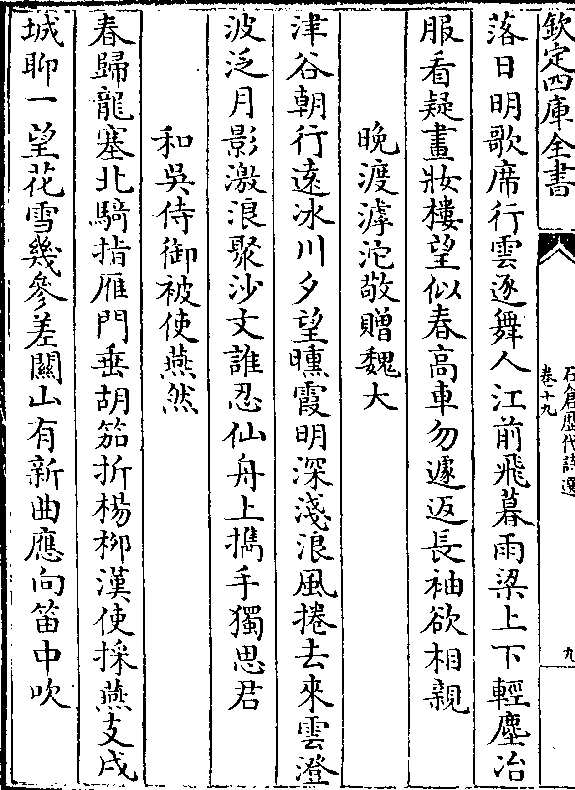 欽定四庫全書
石倉歷代詩選
卷十九
九
落日明歌席行雲逐舞人江前飛暮雨梁上下輕塵冶
服看疑畫妝樓望似春高車勿遽返長袖欲相親
晚渡滹沱敬贈魏大
津谷朝行遠冰川夕望曛霞明深淺浪風捲去來雲澄
波泛月影激浪聚沙文誰忍仙舟上攜手獨思君
和吳侍御被使燕然
春歸龍塞北騎指雁門垂胡笳折楊柳漢使採燕支戍
城聊一望花雪幾參差關山有新曲應向笛中吹